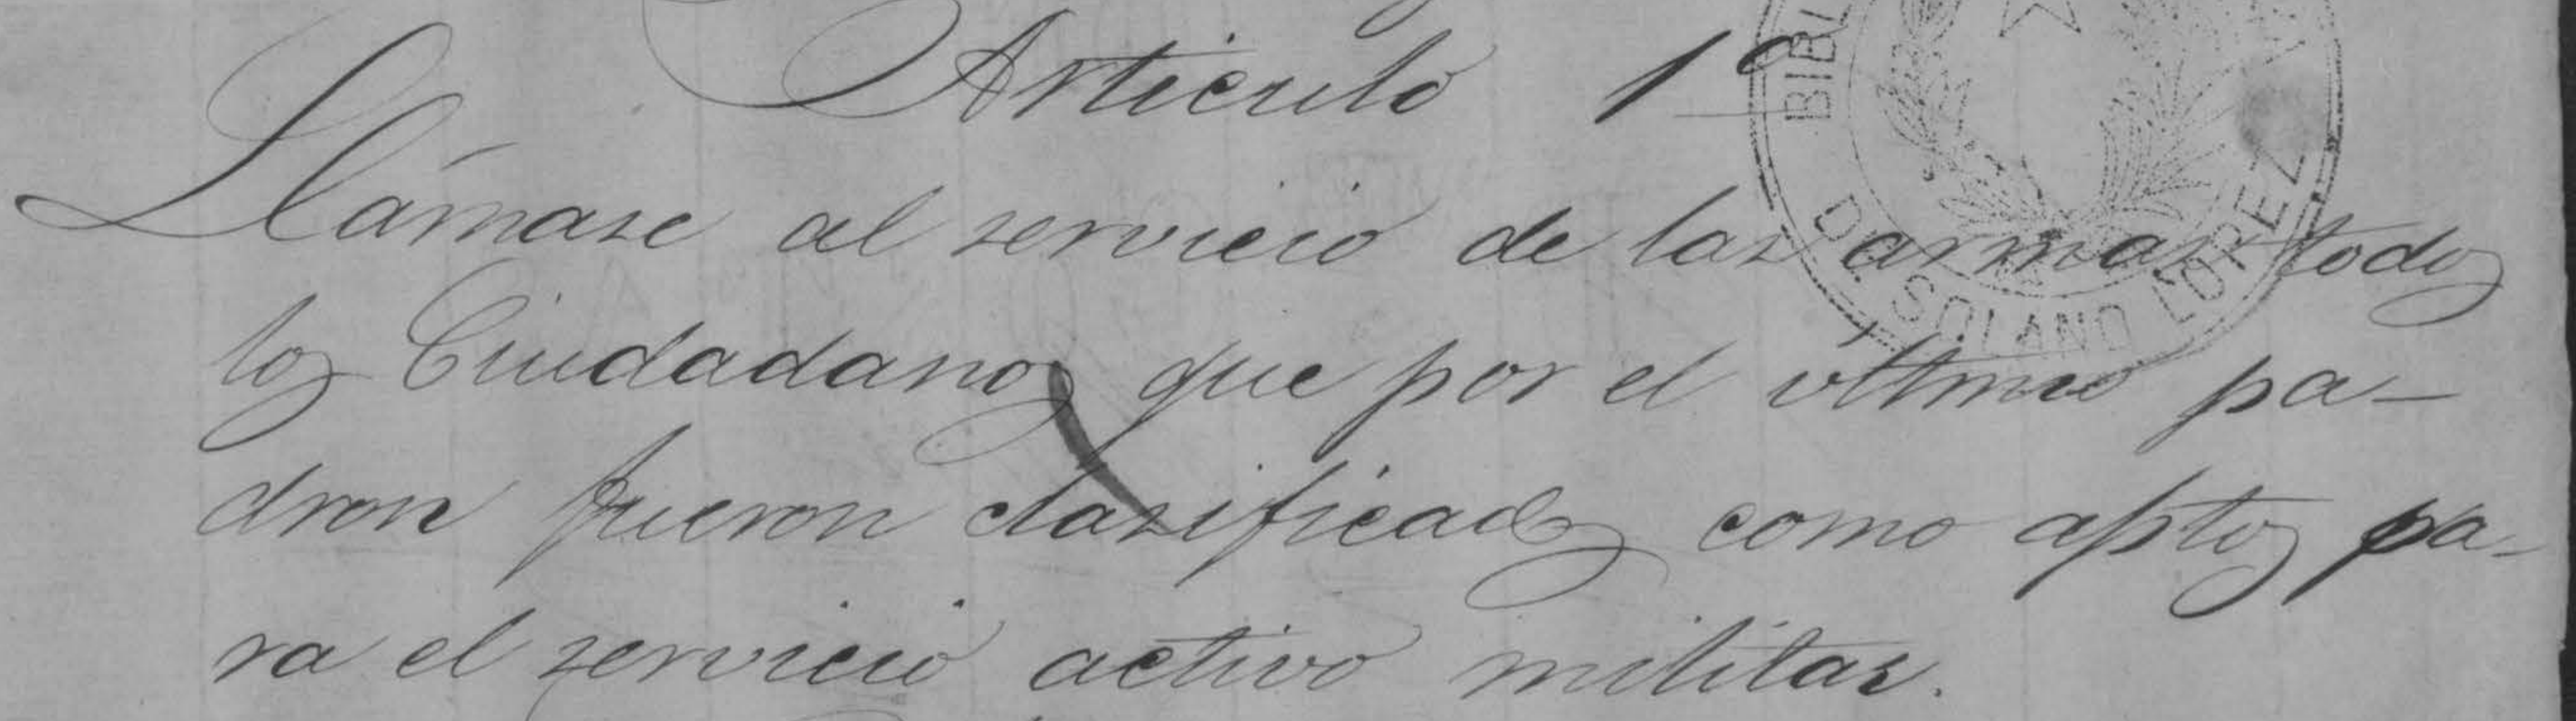 Articulo 1º
Llámase al servicio de las armas todos
los Ciudadanos que por el último pa-
dron fueron clasificados como aptos pa-
ra el servicio activo militar.
BIBL
DE SOLANO LOPEZ